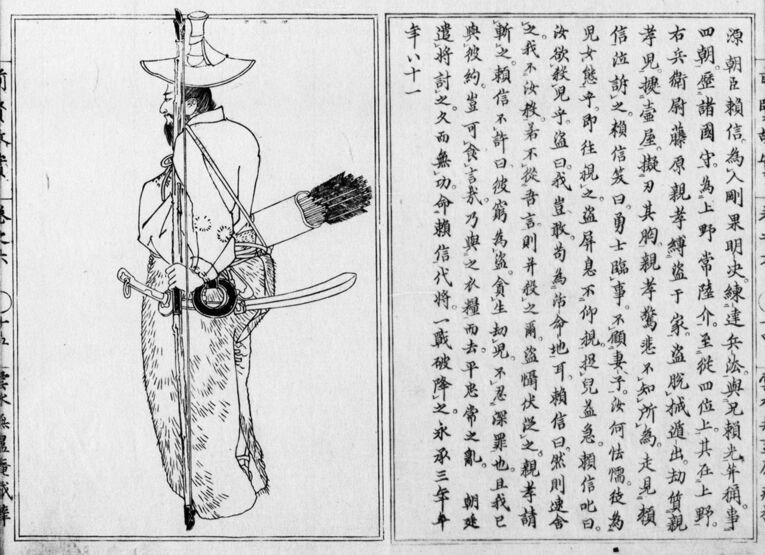 源朝臣賴信為人剛果明決。練達兵法與兄賴光并稱。事
四朝。歷諸國守。為上野常陸介。至從四位上其在上野。
右兵衛尉藤原親孝縛盜于家。盜脫械逃出劫質親
孝兒。據壺屋。擬刃其胸親孝驚悲不知所為。走見賴
信泣訴之賴信笑曰。勇士臨事。不顧妻子。汝何怯懦徒為
兒女態乎。即往視之盜屏息不仰視。捉兒益急。賴信叱曰。
汝欲殺兒乎。盜曰。我豈敢。苟為活命地耳。賴信曰。然則速舍
之我不汝殺。若不從吾言則并殺之爾。盜懾伏從之親孝請
斬之。賴信不許曰。彼窮為盜。貪生劫兒。不忍深罪也。且我已
與彼約。豈可食言哉。乃與之衣糧而去。平忠常之亂。 朝廷
遣將討之久而無功。命賴信代將。一戰破降之。永承三年卒
年八十一
前賢故實 卷之六 ○ 十五 雲水無盡庵藏梓